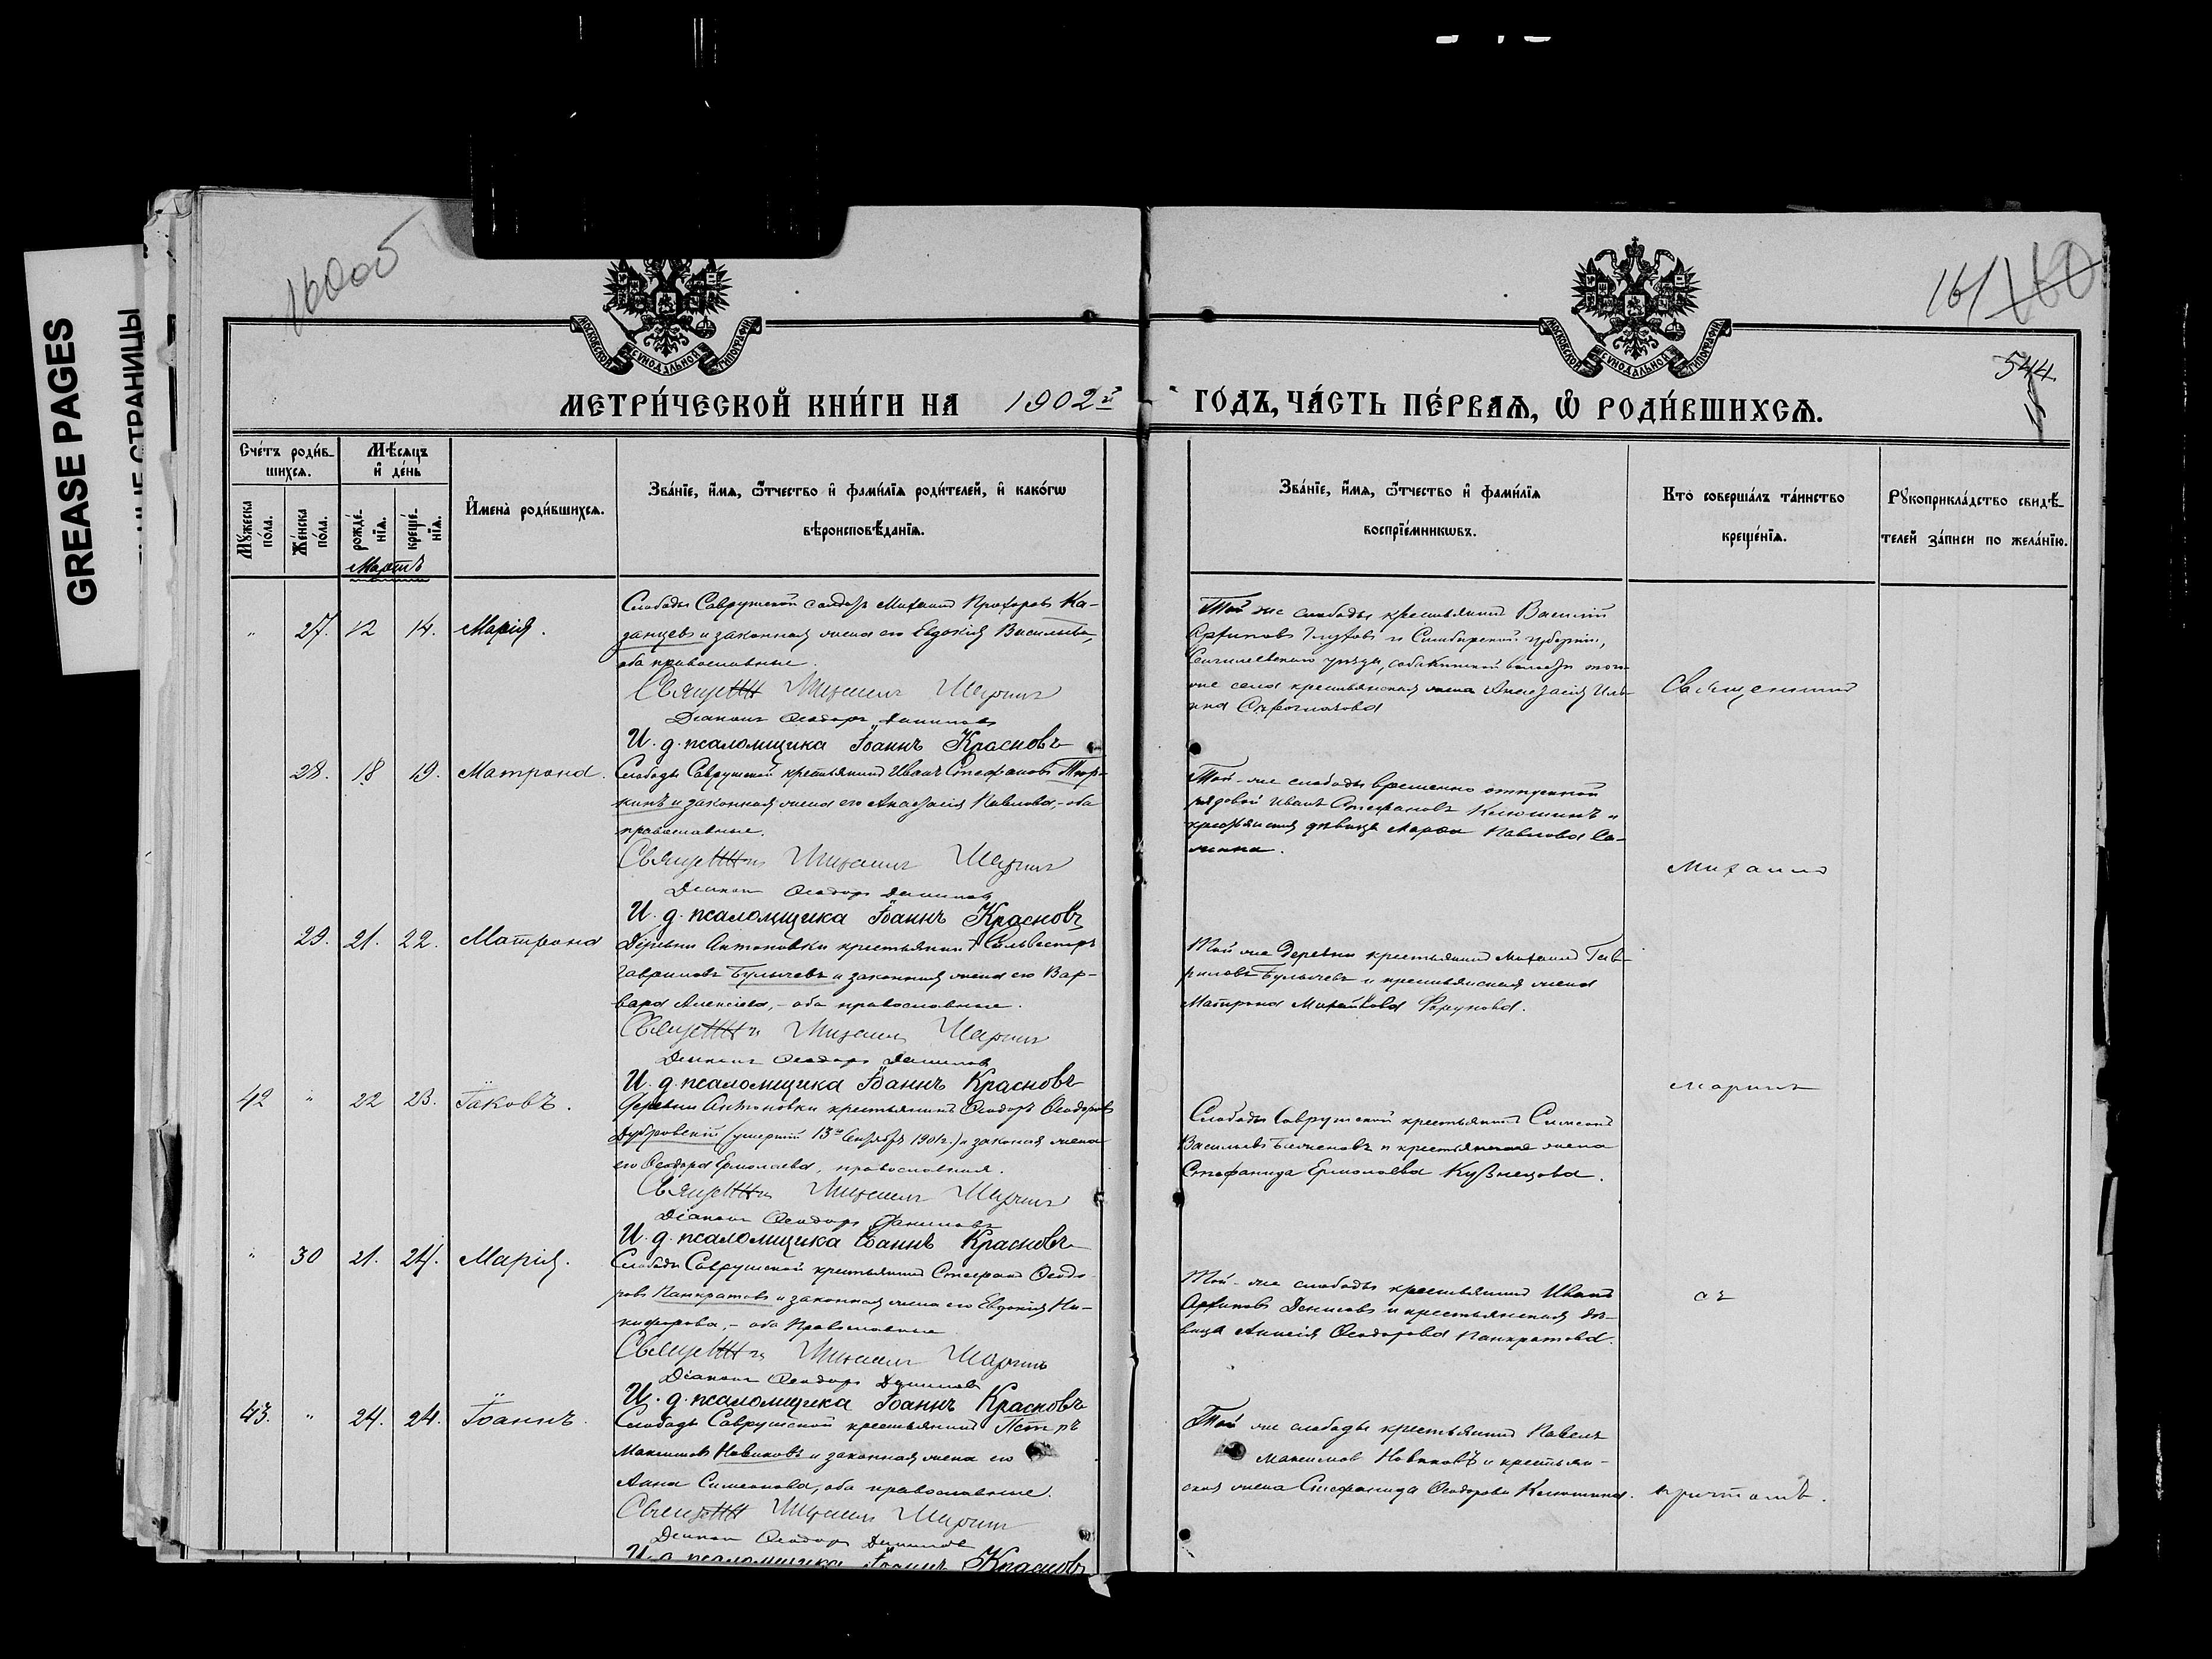 GREASE PAGES
160об
161 160
544
МОСКОВСКОЙ СѴНОДАЛЬНОЙ ТИПОГРАФІИ
МОСКОВСКОЙ СѴНОДАЛЬНОЙ ТИПОГРАФІИ
МЕТРИ́ЧЕСКОЙ КНИ́ГИ НА 1902й ГОДЪ, ЧА́СТЬ ПЕ́РВАѦ, Ѽ РОДИ́ВШИХСѦ.
Сче́тъ роди́в-
шихсѧ.
Мꙋжеска по́ла.
Же́нска по́ла.
Мѣ́сѧцъ
и҆ де́нь
рожде́-
нїѧ.
креще́-
нїѧ.
Мартъ
И҆мена̀ роди́вшихсѧ.
Зва́нїе, и҆́мѧ, ѻ҆́тчество и҆ фами́лїѧ роди́телей, и҆ како́гѡ
вѣроисповѣ́данїѧ.
Зва́нїе, и҆́мѧ, ѻ҆́тчество и҆ фами́лїѧ
воспрїе́мникѡвъ.
Кто̀ соверша́лъ та́инство
креще́нїѧ.
Рꙋкоприкла́дство свидѣ́-
телей за́писи по жела́нїю.
" 27. 12 14. Марія.
Слободы Саврушской солдатъ Михаилъ Прохоровъ Ка-
занцевъ и законная жена его Евдокія Васильева,
оба православные.
Священникъ Михаилъ Маринъ
Діаконъ Ѳеодоръ Даниловъ
И. д. псаломщика Іоаннъ Красновъ
Той же слободы крестьянинъ Василій
Архиповъ и Симбирской губерніи,
Сенгилеевскаго уѣзда,
же села крестьянская жена Анастасія Иль-
ина
Священникъ
28. 18 19. Матрона.
Слободы Саврушской крестьянинъ Иванъ Стефановъ Тюр-
кинъ и законная жена его Анастасія Павлова, - оба
православные.
Священникъ Михаилъ Маринъ
Діаконъ Ѳеодоръ Даниловъ
И. д. псаломщика Іоаннъ Красновъ
Той-же слободы временно отпускной
рядовой Иванъ Стефановъ Клюшинъ и
крестьянская дѣвица Марѳа Павлова
Михаилъ
29. 21. 22. Матрона
Деревни Антоновки крестьянинъ Сильвестръ
Гавриловъ Булычевъ и законная жена его Вар-
вара Алексѣева, - оба православные.
Священникъ Михаилъ Маринъ
Діаконъ Ѳеодоръ Даниловъ
И. д. псаломщика Іоаннъ Красновъ
Той же деревни крестьянинъ Михаилъ Гав-
риловъ Булычевъ и крестьянская жена
Матрона Михайлова
Маринъ
42 " 22 23. Іаковъ.
Деревни Антоновки крестьянинъ Ѳеодоръ Ѳеодоровъ
Дубровскій (умершій 13го Сентября 1901г.) и законная жена
его Ѳеодора Ермолаева, православная.
Священникъ Михаилъ Маринъ
Діаконъ Ѳеодоръ Даниловъ
И. д. псаломщика Іоаннъ Красновъ
Слободы Саврушской крестьянинъ Симеонъ
Васильевъ и крестьянская жена
Стефанида Ермолаева Кузнецова.
" 30 21. 24. Марія.
Слободы Саврушской крестьянинъ Стефанъ Ѳеодо-
ровъ Панкратовъ и законная жена его Евдокія Ни-
кифорова, - оба православные
Священникъ Михаилъ Маринъ
Діаконъ Ѳеодоръ Даниловъ
И. д. псаломщика Іоаннъ Красновъ
Той-же слободы крестьянинъ Иванъ
Архиповъ Денисовъ и крестьянская дѣ-
вица Анисія Ѳеодорова Панкратова.
съ
43. " 24. 24. Іоаннъ.
Слободы Саврушской крестьянинъ Петръ
Максимовъ Новиковъ и законная жена его
Анна Симеонова, оба православные.
Священникъ Михаилъ Маринъ
Діаконъ Ѳеодоръ Даниловъ
И. д. псаломщика Іоаннъ Красновъ
Той же слободы крестьянинъ Павелъ
Максимовъ Новиковъ и крестьян-
ская жена Стефанида Ѳеодорова Клюшина.
причтомъ.